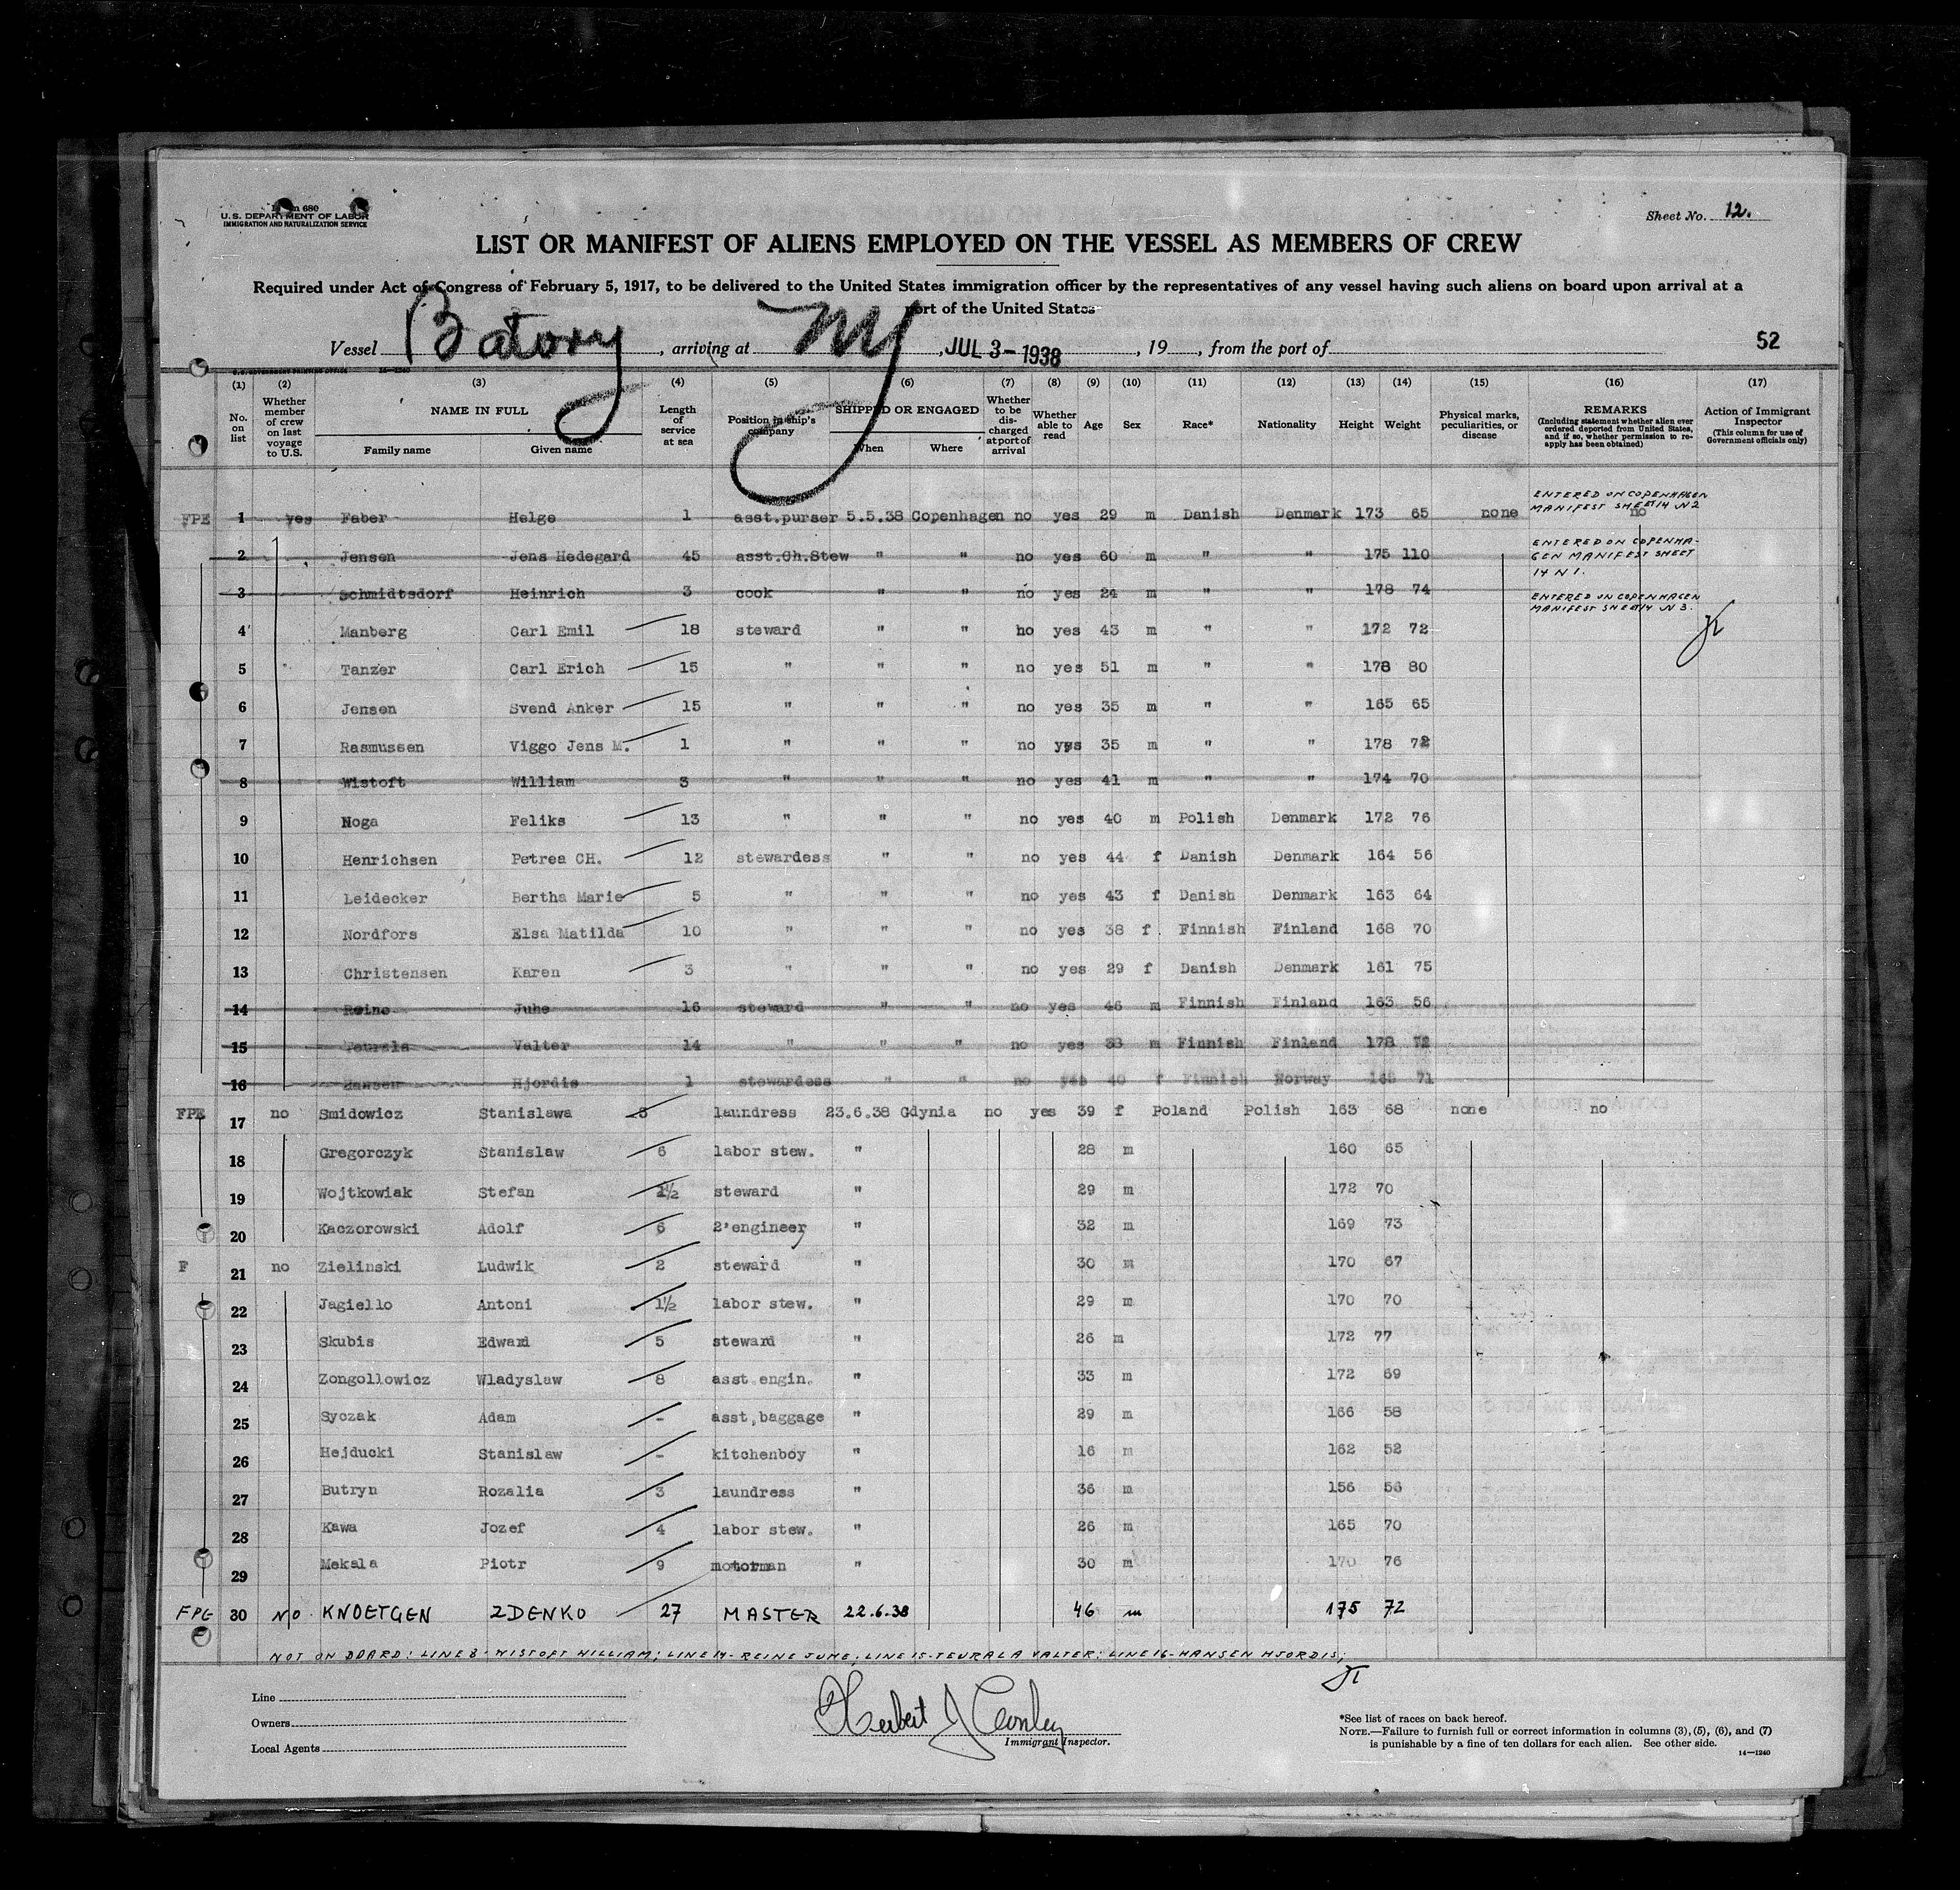 Form 680
U.S. DEPARTMENT OF LABOR
IMMIGRATION AND NATURALIZATION SERVICE
Sheet No. 12.
LIST OR MANIFEST OF ALIENS EMPLOYED ON THE VESSEL AS MEMBERS OF CREW
Required under Act of Congress of February 5, 1917, to be delivered to the United States immigration officer by the representatives of any vessel having such aliens on board upon arrival at a
port of the United States
Vessel Batory, arriving at NY, JUL 3-1938, 19, from the port of 52
U.S. GOVERNMENT PRINTING OFFICE 14-1240
(1) (2) (3) (4) (5) (6) (7) (8) (9) (10) (11) (12) (13) (14) (15) (16) (17)
No. on list
Whether member of crew on last voyage to U.S.
NAME IN FULL
Family name Given name
Length of service at sea
Position in ship's company
SHIPPED OR ENGAGED
When Where
Whether to be discharged at port of arrival
Whether able to read
Age Sex Race* Nationality Height Weight
Physical marks, peculiarities, or disease
REMARKS
(Including statement whether alien ever ordered deported from United States, and if so, whether permission to reapply has been obtained)
Action of Immigrant Inspector
(This column for use of Government officials only)
FPE 1 yes Faber Helge 1 asst.purser 5.5.38 Copenhagen no yes 29 m Danish Denmark 173 65 none no ENTERED ON COPENHAGEN MANIFEST SHEET 14 N 2
2 Jensen Jens Hedegard 45 asst.Ch.Stew " " no yes 60 m " " 175 110 ENTERED ON COPENHAGEN MANIFEST SHEET 14 N 1.
3 Schmidtsdorf Heinrich 3 cook " " no yes 24 m " " 178 74 ENTERED ON COPENHAGEN MANIFEST SHEET 14 N 3.
4 Manberg Carl Emil 18 steward " " ho yes 43 m " " 172 72
5 Tanzer Carl Erich 15 " " " no yes 51 m " " 178 80
6 Jensen Svend Anker 15 " " " no yes 35 m " " 165 65
7 Rasmussen Viggo Jens M. 1 " " " no yes 35 m " " 178 72
8 Wistoft William 3 " " " no yes 41 m " " 174 70
9 Noga Feliks 13 " " " no yes 40 m Polish Denmark 172 76
10 Henrichsen Petrea CH. 12 stewardess " " no yes 44 f Danish Denmark 164 56
11 Leidecker Bertha Marie 5 " " " no yes 43 f Danish Denmark 163 64
12 Nordfors Elsa Matilda 10 " " " no yes 38 f. Finnish Finland 168 70
13 Christensen Karen 3 " " " no yes 29 f Danish Denmark 161 75
14 Reine Juhe 16 steward " " no yes 46 m Finnish Finland 163 56
15 Teurala Valter 14 " " " no yes 33 m Finnish Finland 178 72
16 Hansen Hjordis 1 stewardess " " no yes 40 f Finnish Norway 168 71
FPE 17 no Smidowicz Stanislawa 3 laundress 23.6.38 Gdynia no yes 39 f Poland Polish 163 68 none no
18 Gregorczyk Stanislaw 6 labor stew. " 28 m 160 65
19 Wojtkowiak Stefan 1½ steward " 29 m 172 70
20 Kaczorowski Adolf 6 2'engineer " 32 m 169 73
F 21 no Zielinski Ludwik 2 steward " 30 m 170 67
22 Jagiello Antoni 1½ labor stew. " 29 m 170 70
23 Skubis Edward 5 steward " 26 m 172 77
24 Zongollowicz Wladyslaw 8 asst.engin. " 33 m 172 69
25 Syczak Adam - asst,baggage " 29 m 166 58
26 Hejducki Stanislaw - kitchenboy " 16 m 162 52
27 Butryn Rozalia 3 laundress " 36 m 156 56
28 Kawa Jozef 4 labor stew. " 26 m 165 70
29 Mekala Piotr 9 motorman " 30 m 170 76
FPE 30 NO KNOETGEN ZDENKO 27 MASTER 22.6.38 46 m 175 72
NOT ON BOARD: LINE 8-WISTOFT WILLIAM; LINE 14-REINE JUHE; LINE 15-TEURALA VALTER; LINE 16-HANSEN HJORDIS;
Line
Owners
Local Agents
Immigrant Inspector.
*See list of races on back hereof.
NOTE.—Failure to furnish full or correct information in columns (3), (5), (6), and (7)
is punishable by a fine of ten dollars for each alien. See other side.
14—1240